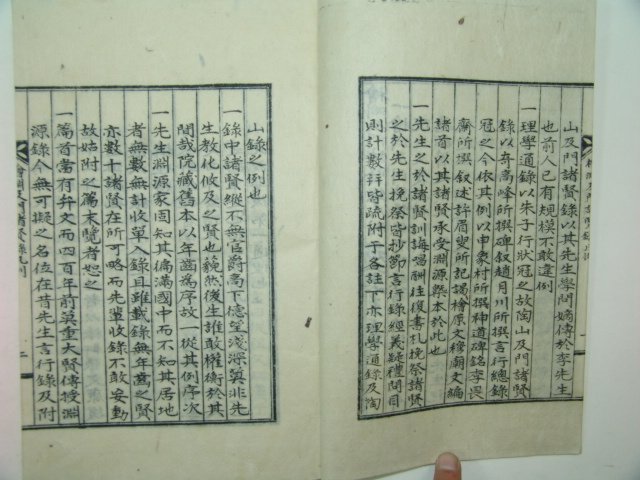 山及門諸賢錄以其先生學問嫡傳於李先生
也前人已有規模不敢違例
一理學通錄以朱子行狀冠之故陶山及門諸賢
錄以奇高峰所撰碑叙趙月川所撰言行總錄
冠之今依其例以申象村所撰神道碑銘李畏
齋所撰叙述許眉叟所記謁檜原文穆廟文編
諸首以其諸子尊受淵源槩本於此也
一先生之於諸賢訓誨唱酬往復書札挽祭諸賢
之於先生挽祭皆抄節言行錄經義疑禮問目
則計數拜皆疏附于各註下亦理學通錄及陶
山錄之例也
一錄中諸賢縱不無官爵高下德望淺深莫非先
生敎化攸及之賢也藐然後生誰敢權衡於其
間哉院藏舊本以年齒爲序故一從其例序次
一先生淵源家固知其徧滿國中而不知其居地
者無數無計收單入錄且雖載錄無年齒之賢
亦數十諸賢在所可略而先輩收錄不敢妄動
故姑附之篇末覽者恕之
一篇首當有弁文而四百年前莫重大賢傳授淵
源錄今無可擬之名位在昔先生言行錄及附